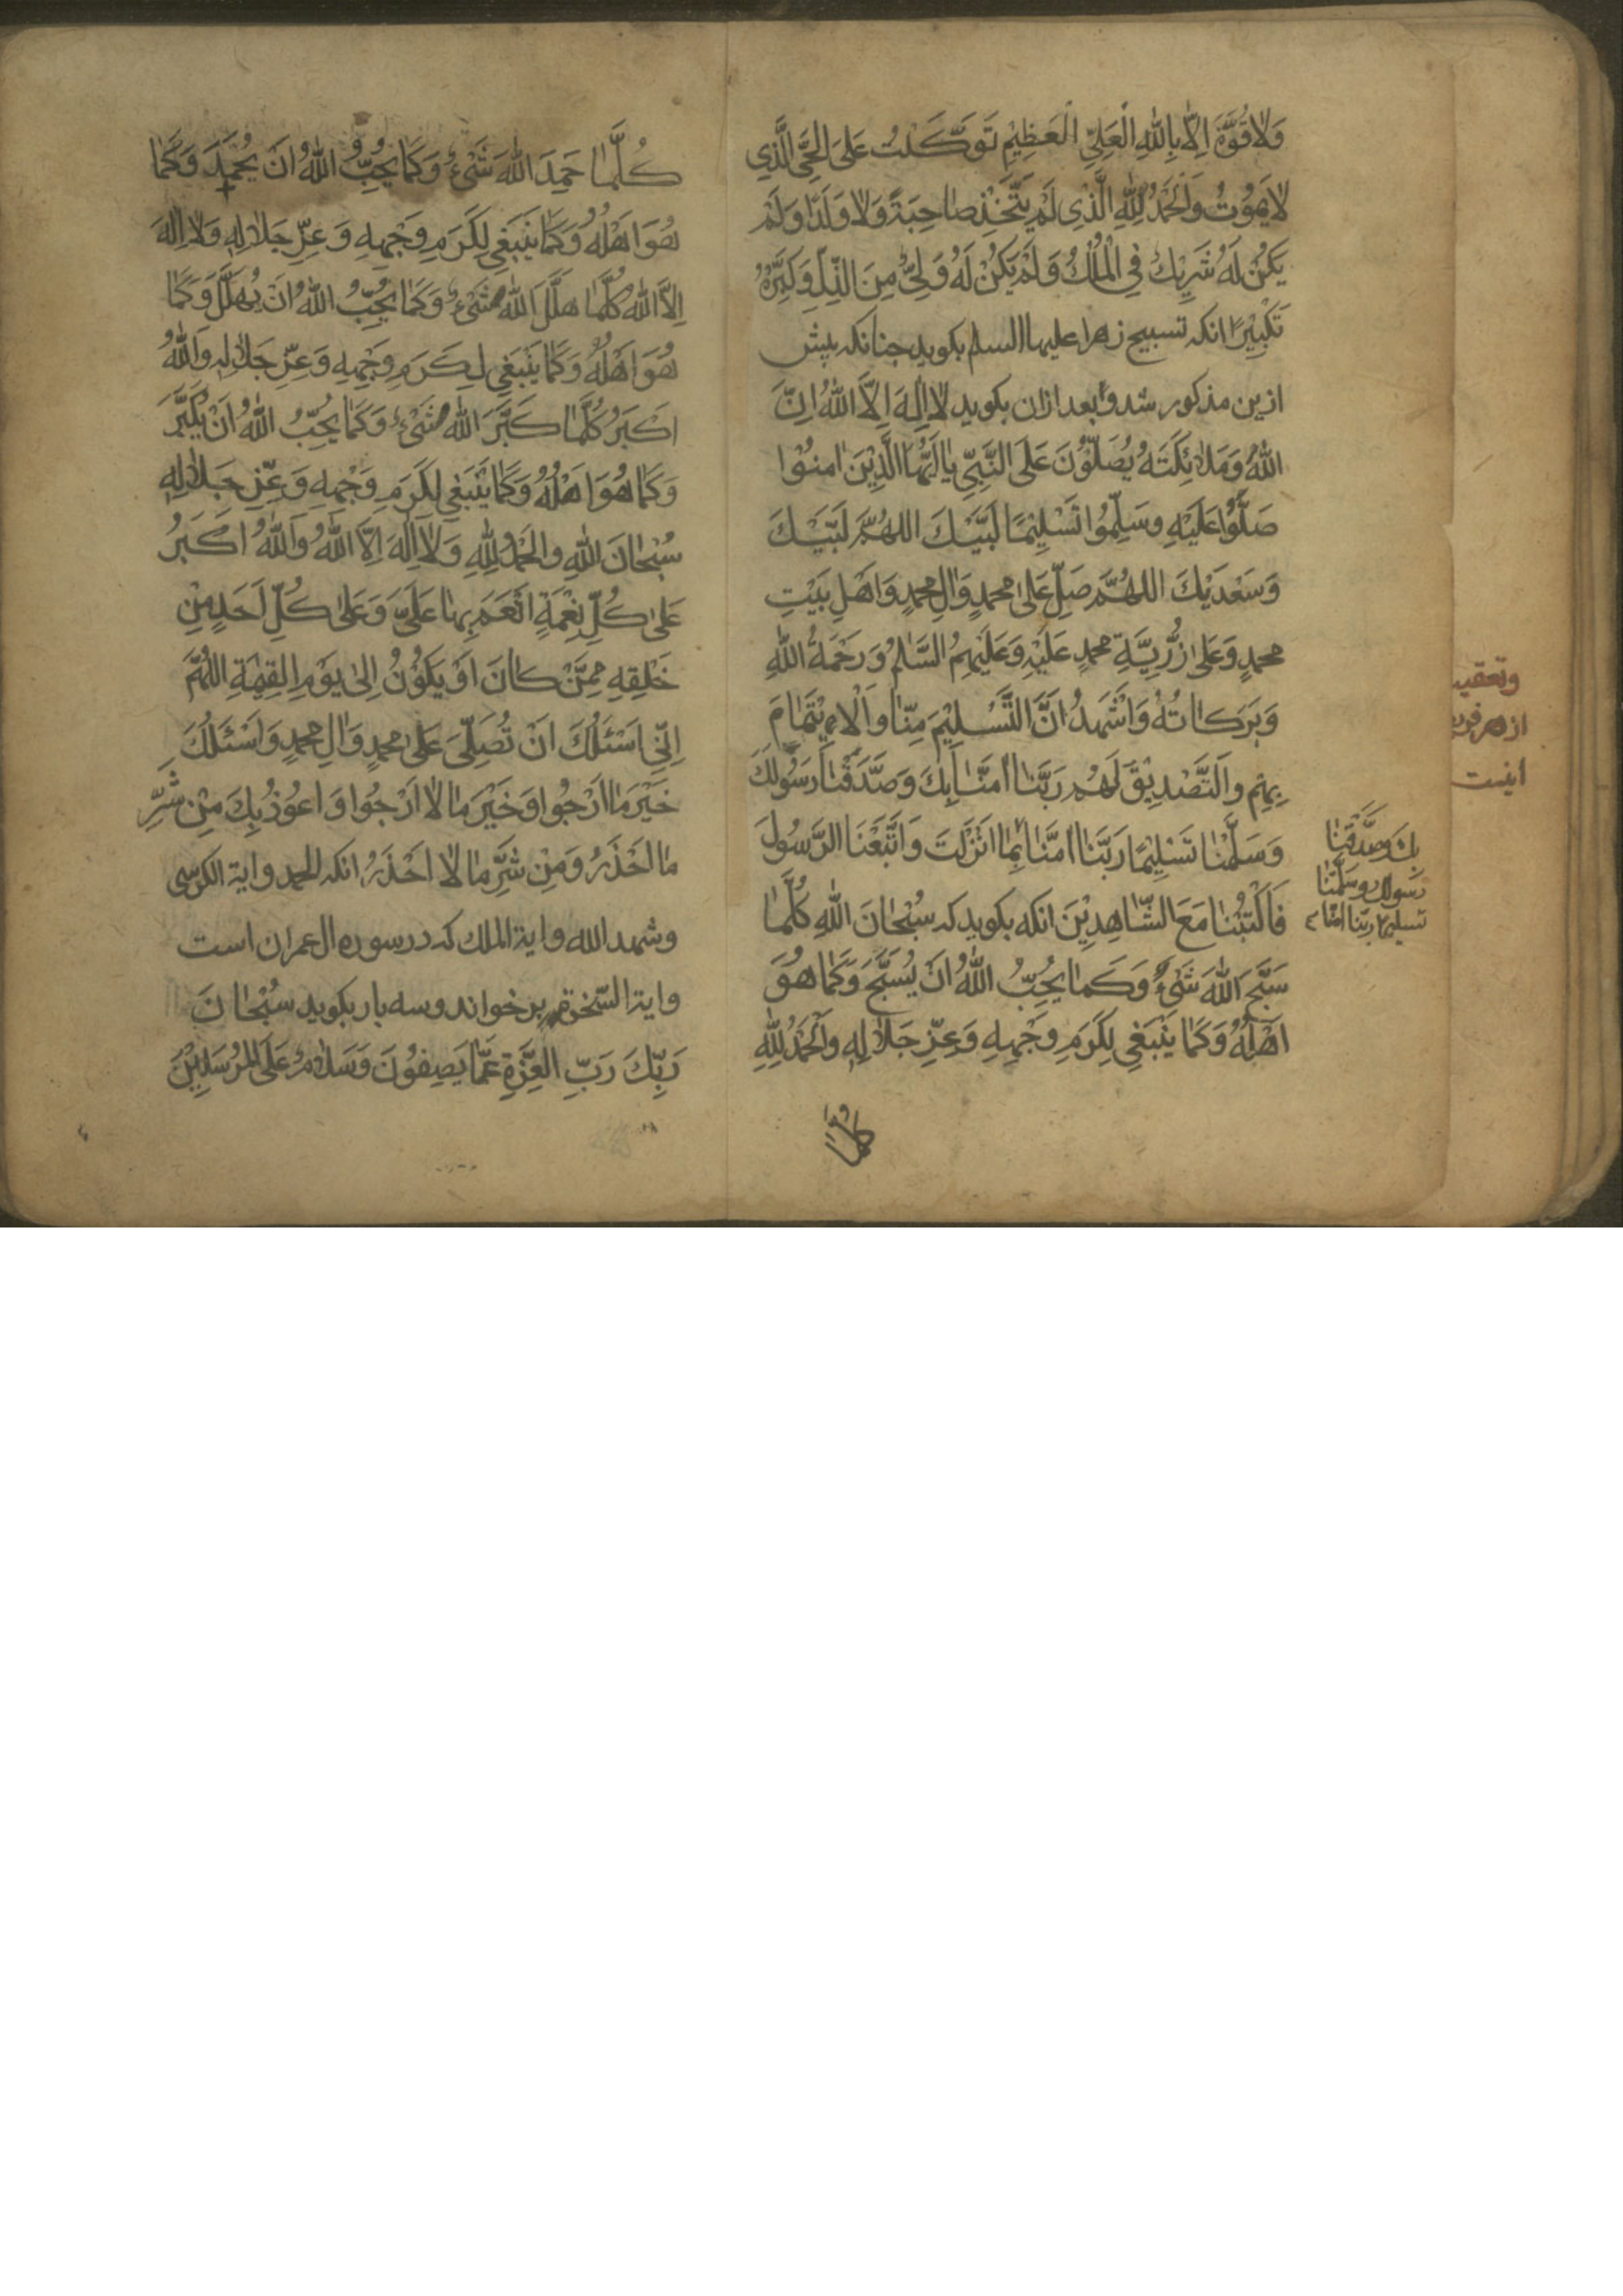 وَلاٰ قُوَّةَ اِلاّٰ بِاللّٰهِ الْعَلِيِّ الْعَظِيْمِ تَوَكَّلْتُ عَلَى الْحَيِّ الَّذِي
لاٰ يَمُوْتُ وَالْحَمْدُ لِلّٰهِ الَّذِي لَمْ يَتَّخِذْ صٰاحِبَةً وَلاٰ وَلَدًا وَلَمْ
يَكُنْ لَهُ شَرِيْكٌ فِي الْمُلْكِ وَلَمْ يَكُنْ لَهُ وَلِيٌّ مِنَ الذُّلِّ وَكَبِّرْهُ
تَكْبِيْرًا انكه تسبيح زهرا عليها السلم بكويد جنانكه پيش
ازين مذكور شد و بعد ازان بكويد لاٰ اِلٰهَ اِلاَّ اللّٰهُ اِنَّ
اللّٰهَ وَمَلاٰئِكَتَهُ يُصَلُّوْنَ عَلَى النَّبِيِّ يٰا اَيُّهَا الَّذِيْنَ اٰمنُوْا
صَلُّوْا عَلَيْهِ وسَلِّمُوا تَسْلِيْمًا لَبَّيْكَ اللهُمَّ لَبَّيْكَ
وَسَعْدَيْكَ اللهُمَّ صَلِّ عَلىٰ محمدٍ وَاٰلِ محمدٍ وَاَهْلِ بَيْتِ
محمدٍ وَعَلىٰ ذُرِّيَّةِ محمدٍ عَلَيْهِ وَعَلَيْهِمُ السَّلٰمُ وَرَحْمَةُ اللّٰهِ
وَبَرَكٰاتُهُ وَاَشْهَدُ اَنَّ التَّسْلِيْمَ مِنّٰا وَالْاِيْتِمٰامَ
بِهِمْ وَالتَّصْدِيْقَ لَهُمْ رَبَّنٰا اٰمَنّٰا بِكَ وَصَدَّقْنٰا رَسُوْلَكَ
وَسَلَّمْنٰا تَسْلِيْمًا رَبَّنٰا اٰمَنّٰا بِمٰا اَنْزَلْتَ وَاتَّبَعْنَا الرَّسُوْلَ
فَاكْتُبْنٰا مَعَ الشّٰاهِدِيْنَ انكه بكويد كه سُبْحٰانَ اللّٰهِ كُلَّمٰا
سَبَّحَ اللّٰهَ شَيْءٌ وَكَمٰا يُحِبُّ اللّٰهُ اَنْ يُسَبَّحَ وَكَمٰا هُوَ
اَهْلُهُ وَكَمٰا يَنْبَغِي لِكَرَمِ وَجْهِهِ وَعِزِّ جَلاٰلِهِ وَالْحَمْدُ لِلّٰهِ
كُلَّمٰا
بِكَ وَصَدَّقْنٰا
رسولك وسَلَّمْنٰا
تسليما ربّنا امنّا
وتعقيب
از هر
اينست
كُلَّمٰا حَمِدَ اللّٰهَ شَيْءٌ وَكَمٰا يُحِبُّ اللّٰهُ اَنْ يُحْمَدَ وَكَمٰا
هُوَ اَهْلُهُ وَكَمٰا يَنْبَغِي لِكَرَمِ وَجْهِهِ وَعِزِّ جَلاٰلِهِ وَلاٰ اِلٰهَ
اِلاَّ اللّٰهُ كُلَّمٰا هَلَّلَ اللّٰهَ شَيْءٌ وَكَمٰا يُحِبُّ اللّٰهُ اَنْ يُهَلَّلَ وَكَمٰا
هُوَ اَهْلُهُ وَكَمٰا يَنْبَغِي لِكَرَمِ وَجْهِهِ وَعِزِّ جَلاٰلِهِ وَاللّٰهُ
اَكْبَرُ كُلَّمٰا كَبَّرَ اللّٰهَ شَيْءٌ وَكَمٰا يُحِبُّ اللّٰهُ اَنْ يُكَبَّرَ
وَكَمٰا هُوَ اَهْلُهُ وَكَمٰا يَنْبَغِي لِكَرَمِ وَجْهِهِ وَعِزِّ جَلاٰلِهِ
سُبْحٰانَ اللّٰهِ والْحَمْدُ لِلّٰهِ وَلاٰ اِلٰهَ اِلاَّ اللّٰهُ وَاللّٰهُ اَكْبَرُ
عَلىٰ كُلِّ نِعْمَةٍ اَنْعَمَ بِهٰا عَلَيَّ وَعَلىٰ كُلِّ اَحَدٍ مِنْ
خَلْقِهِ مِمَّنْ كٰانَ اَوْ يَكُوْنُ اِلىٰ يَوْمِ الْقِيٰمَةِ اللهُمَّ
اِنِّي اَسْئَلُكَ اَنْ تُصَلِّيَ عَلىٰ محمدٍ وَاٰلِ محمدٍ وَاَسْئَلُكَ
خَيْرَ مٰا اَرْجُوا وَخَيْرَ مٰا لاٰ اَرْجُوا وَاَعُوْذُ بِكَ مِنْ شَرِّ
مٰا اَحْذَرُ وَمِنْ شَرِّ مٰا لاٰ اَحْذَرُ انكه الحمد واية الكرسى
وشهد الله واية الملك كه در سوره ال عمران است
واية السّخرة بر خواند وسه بار بكويد سُبْحٰانَ
رَبِّكَ رَبِّ الْعِزَّةِ عَمّٰا يَصِفُوْنَ وَسَلاٰمٌ عَلَى الْمُرْسَلِيْنَ